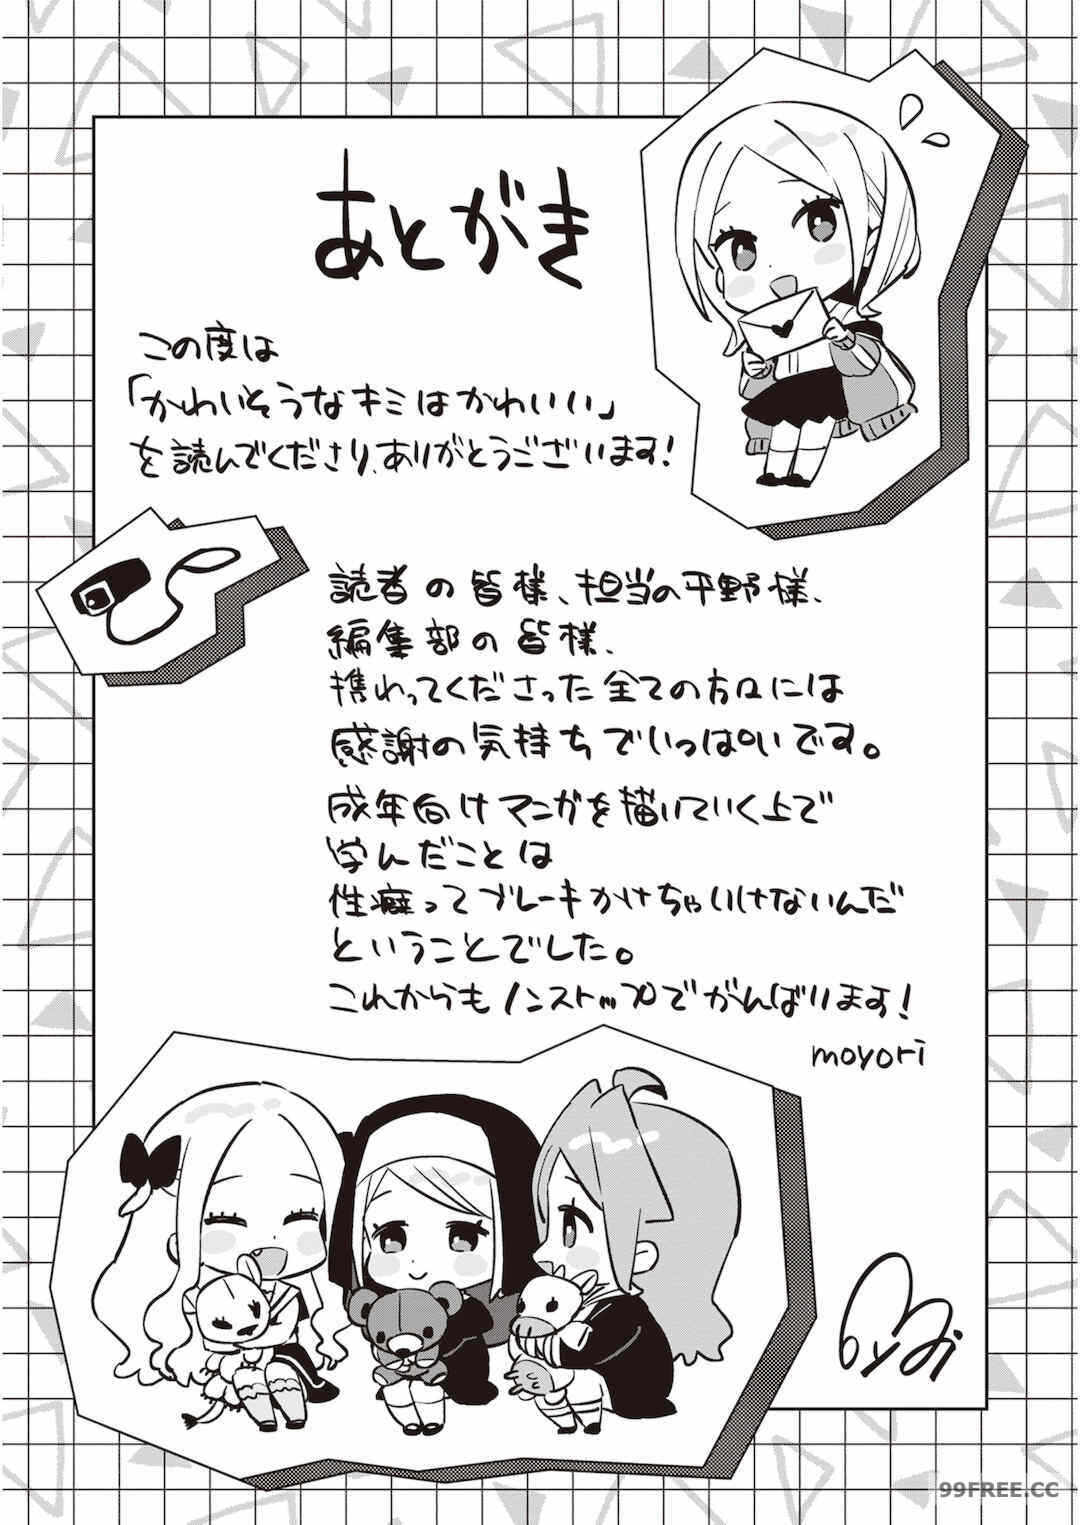 あとがき
この度は
「かわいそうなキミはかわいい」
を読んでくださり、ありがとうございます！
読者の皆様、担当の平野様、
編集部の皆様、
携わってくださった全ての方々には
感謝の気持ちでいっぱいです。
成年向けマンガを描いていく上で
学んだことは
性癖ってブレーキかけちゃいけないんだ
ということでした。
これからもノンストップでがんばります！
moyori
99FREE.CC